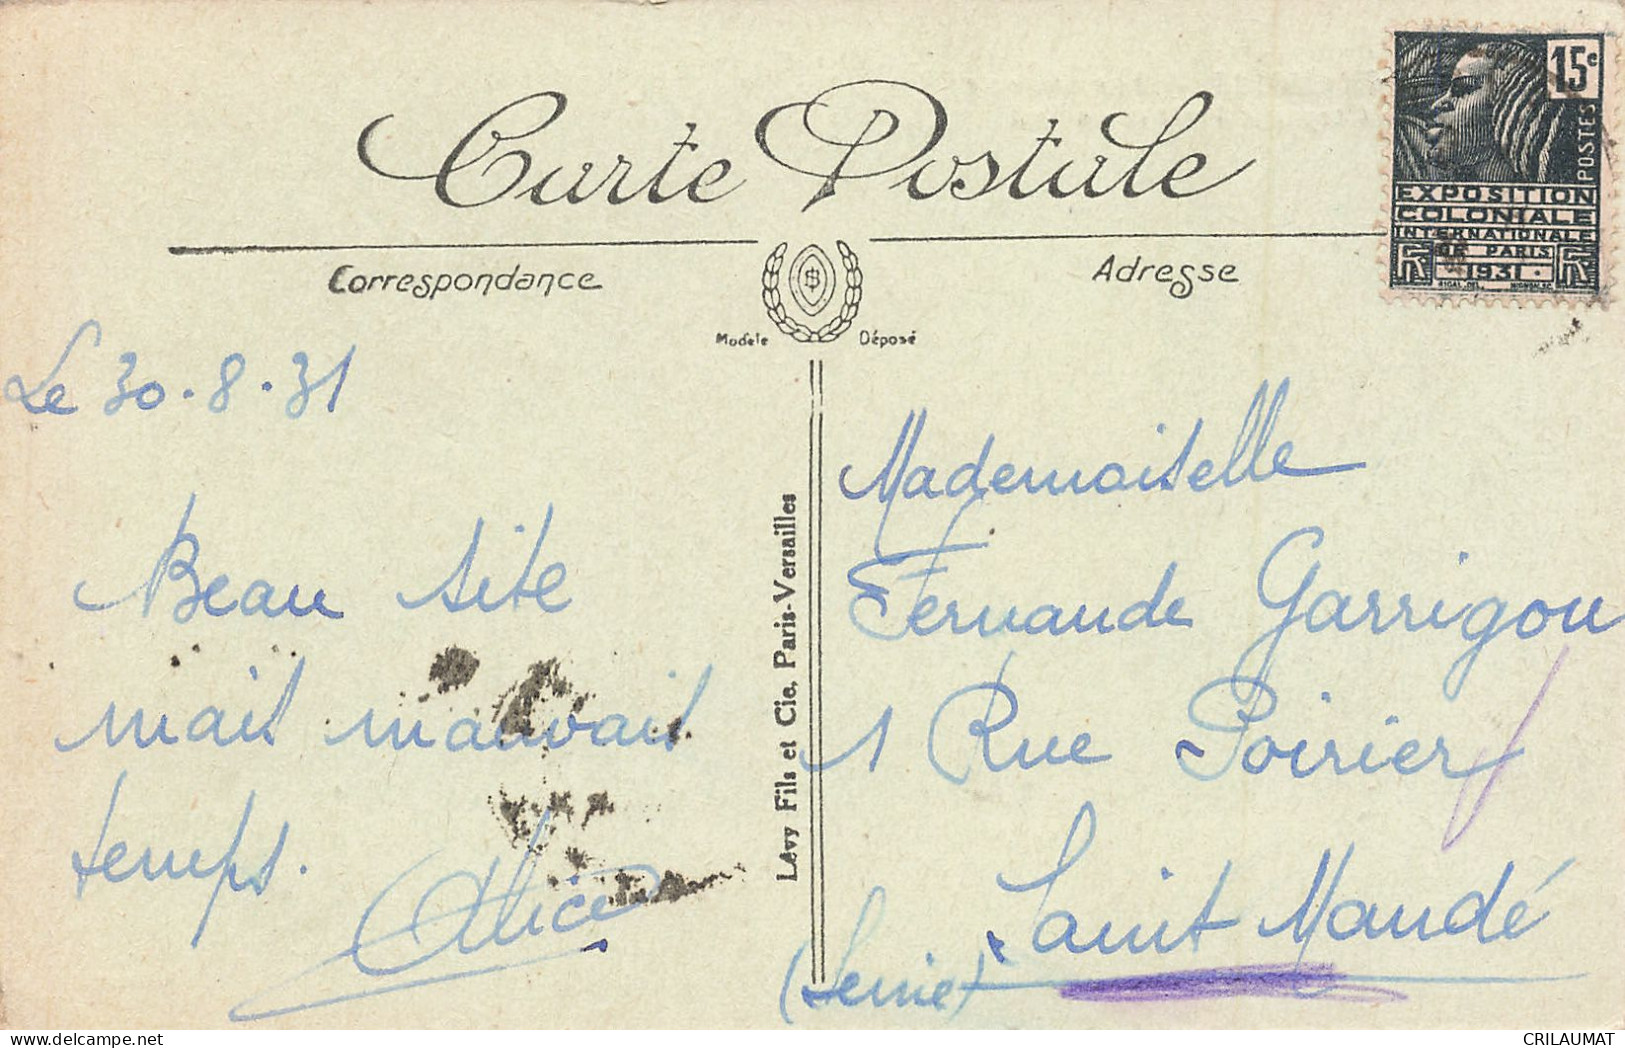 Carte Postale
15c
POSTES
EXPOSITION
COLONIALE
INTERNATIONALE
DE PARIS
1931
Correspondance
Adresse
Modèle Déposé
Le 30.8.31
Beau site
mais mauvais
temps.
Alice
Lévy Fils et Cie, Paris-Versailles
Mademoiselle
Fernande Garrigou
1 Rue Poirier
Saint Mandé
(Seine)
CRILAUMAT